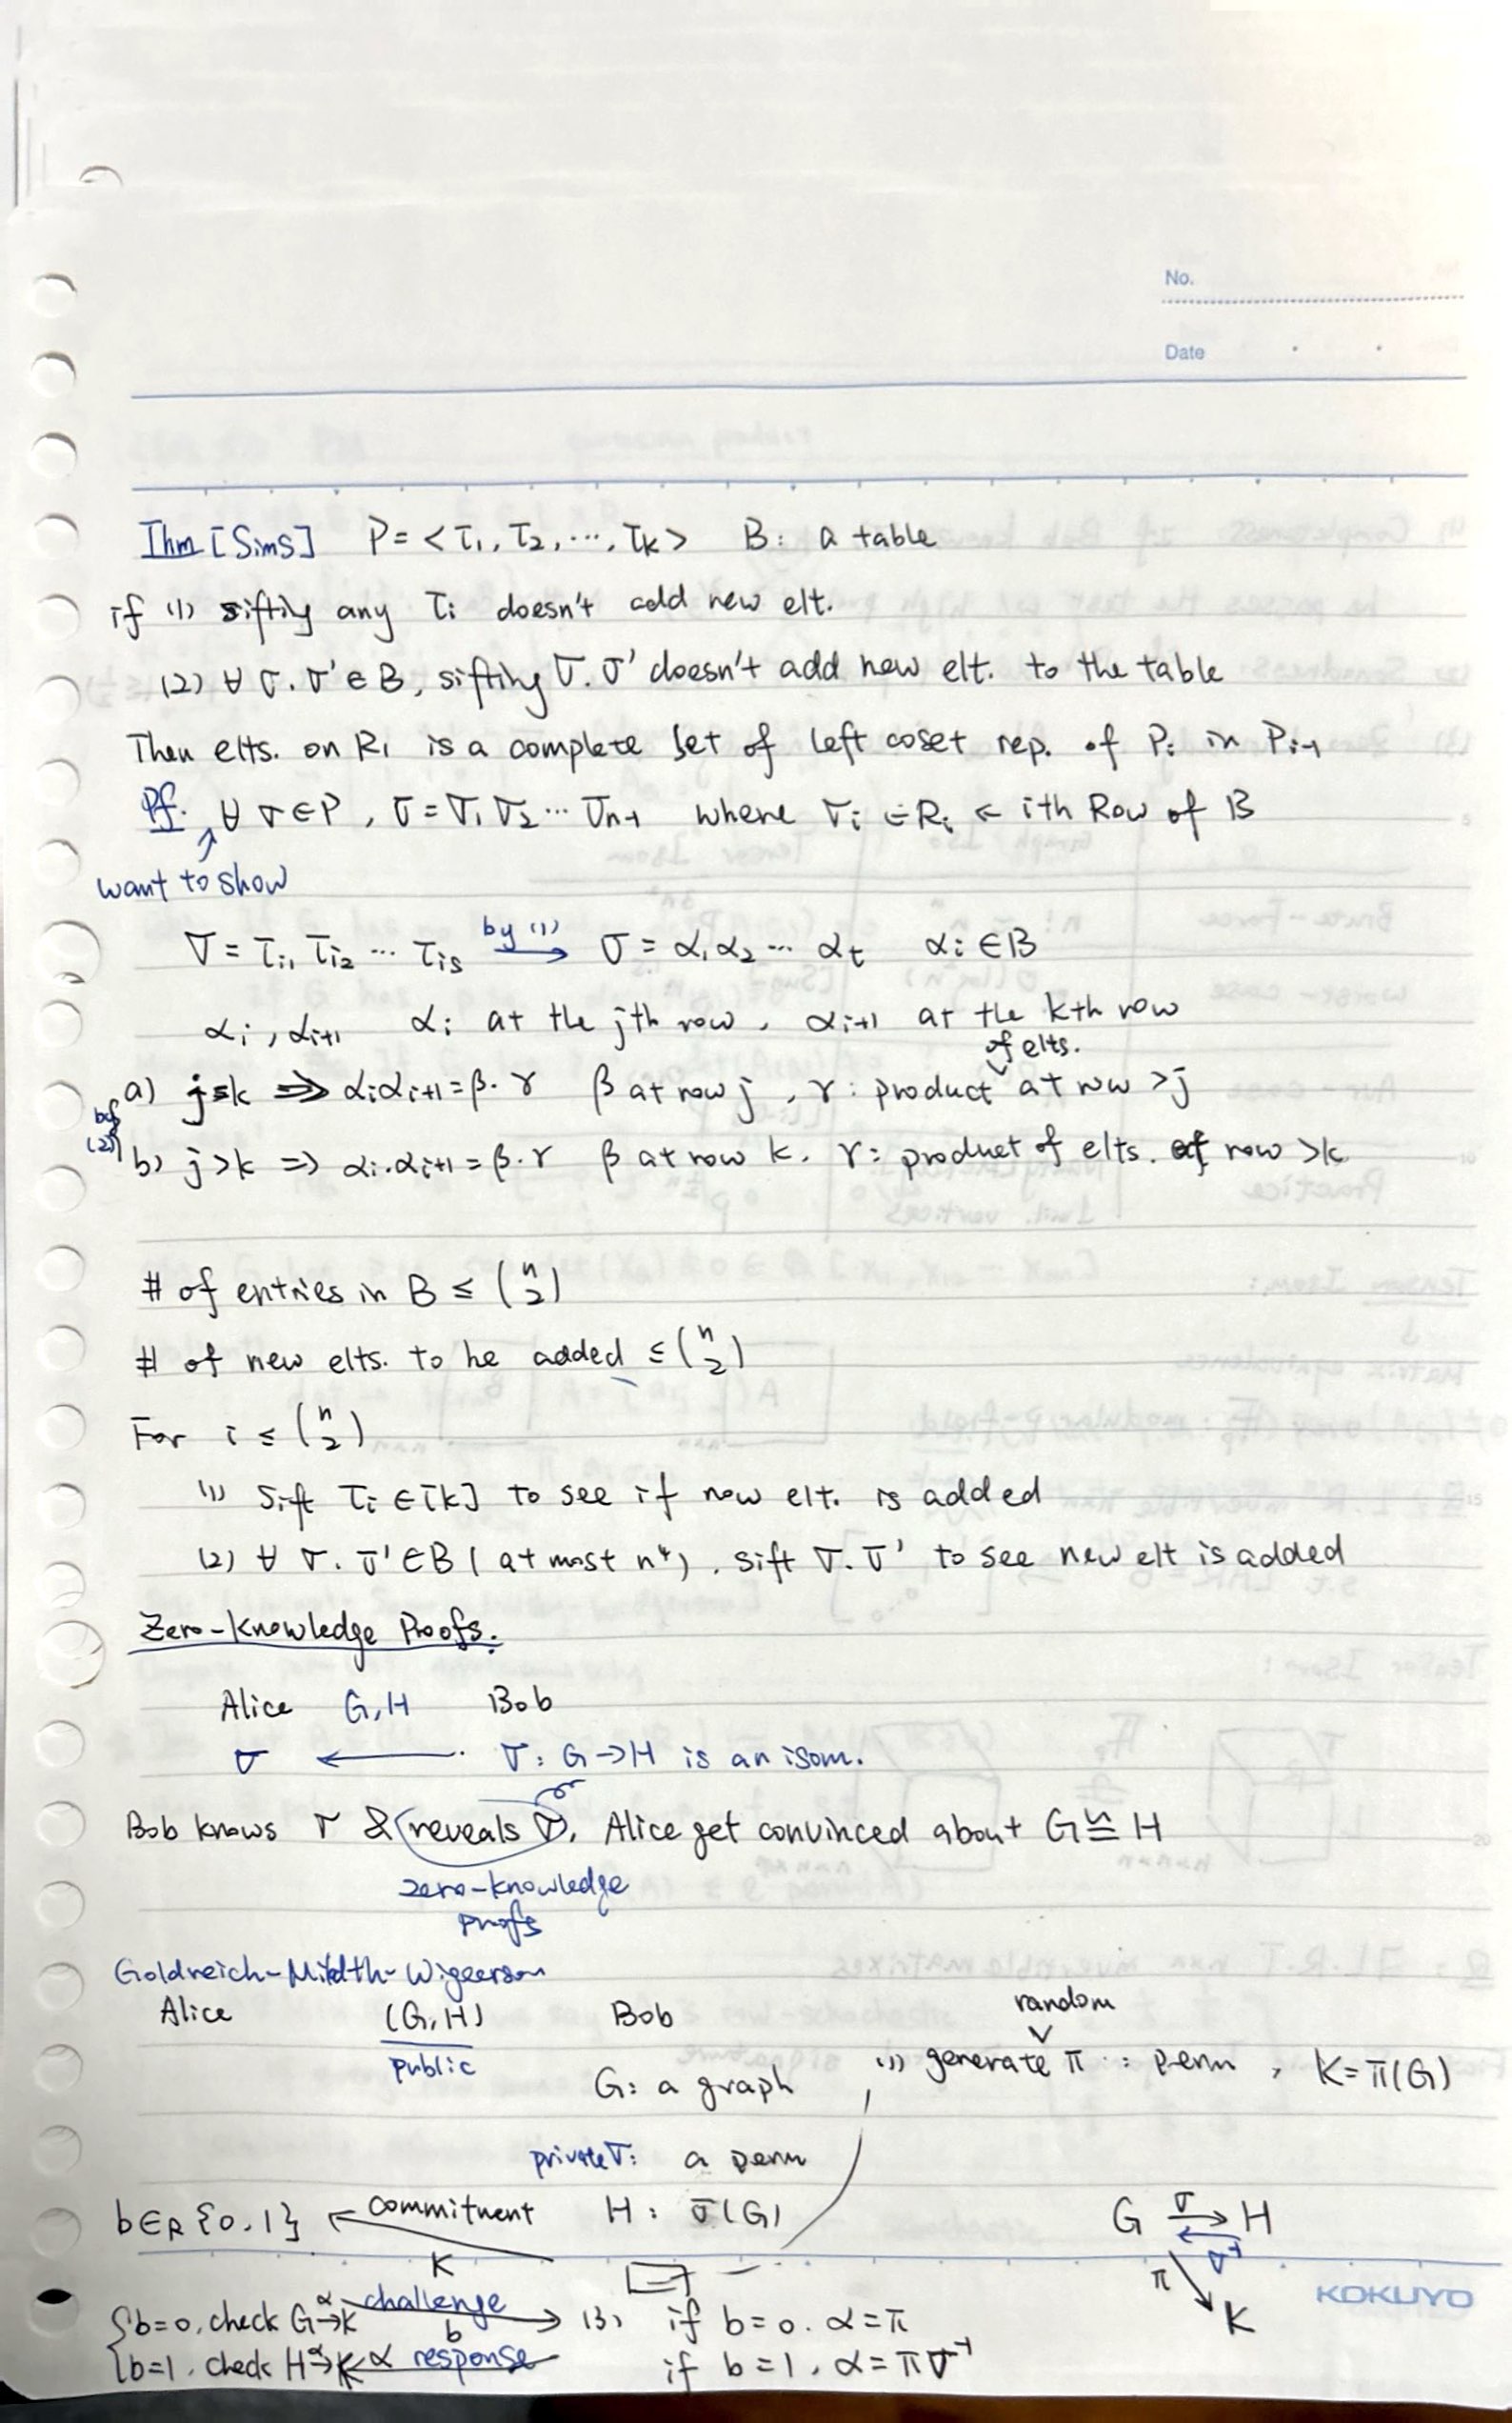 No.
Date
Thm [Sims] P = <τ₁, τ₂, ..., τk> B: a table
if (1) sifting any τi doesn't add new elt.
(2) ∀ σ.σ' ∈ B, sifting σ.σ' doesn't add new elt. to the table
Then elts. on Ri is a complete set of left coset rep. of Pi in Pi-1
Pf. ∀ σ ∈ P, σ = σ₁ σ₂ ... σn-1 where σi ∈ Ri ← ith Row of B
want to show
σ = τi₁ τi₂ ... τis by (1) → σ = α₁ α₂ ... αt αi ∈ B
αi, αi+1 αi at the jth row, αi+1 at the kth row
a) j≤k ⇒ αiαi+1 = β·γ β at row j, γ: product of elts. at row >j
by (2)
b) j>k ⇒ αi.αi+1 = β.γ β at row k. γ: product of elts. at row >k
# of entries in B ≤ (n 2)
# of new elts. to be added ≤ (n 2)
For i ≤ (n 2)
(1) Sift τi ∈ [k] to see if new elt. is added
(2) ∀ σ.σ' ∈ B (at most n⁴), sift σ.σ' to see new elt is added
Zero-Knowledge Proofs.
Alice G,H Bob
σ ← σ: G→H is an isom.
Bob knows σ & reveals σ, Alice get convinced about G ≅ H
zero-knowledge
proofs
Goldreich-Mildth-Wigeerson
Alice (G,H) Bob
public
random
(1) generate π: perm, K=π(G)
G: a graph
private σ: a perm
b∈R{0,1} ← commitment H: σ(G)
K
G σ→ H
σ⁻¹
π
K
KOKUYO
{b=0, check G α→K challenge b → (3) if b=0. α=π
b=1, check H α→K ← α response if b=1, α=πσ⁻¹